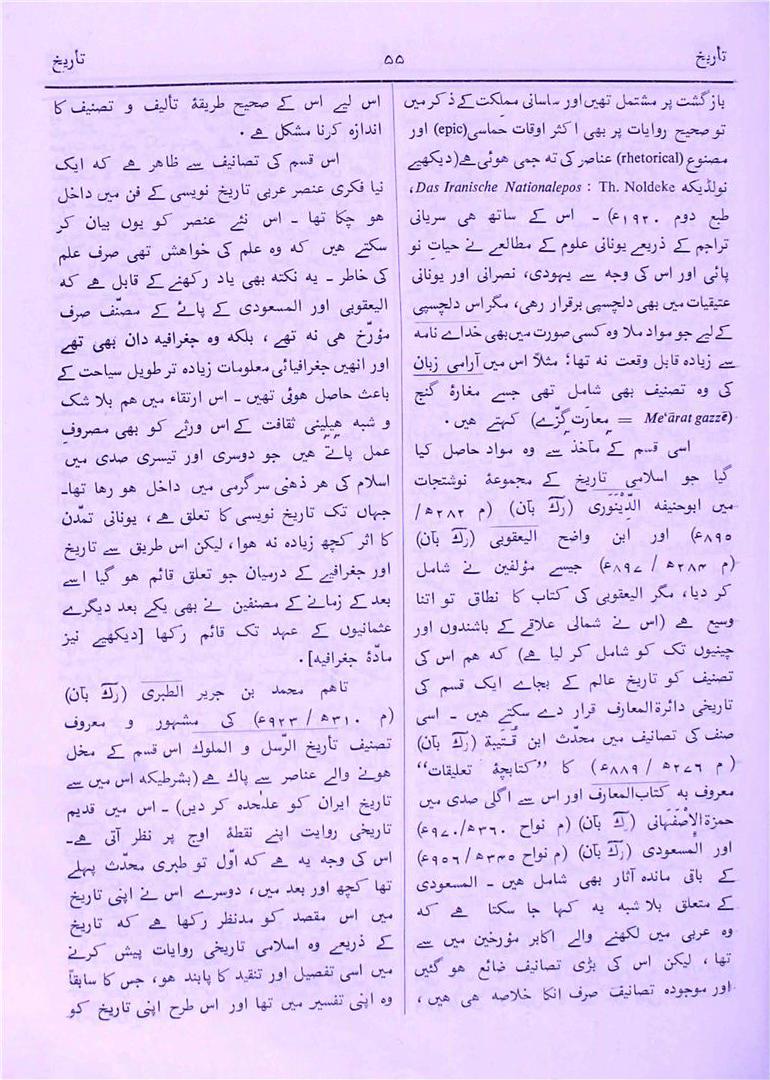 تأریخ
۵۵
تأریخ
بازگشت پر مشتمل تھیں اور ساسانی مملکت کے ذکر میں
تو صحیح روایات پر بھی اکثر اوقات حماسی (epic) اور
مصنوع (rhetorical) عناصر کی تہ جمی ہوئی ہے (دیکھیے
نولڈیکہ Das Iranische Nationalepos : Th. Noldeke،
طبع دوم ۱۹۲۰ء) ۔ اس کے ساتھ ہی سریانی
تراجم کے ذریعے یونانی علوم کے مطالعے نے حیات نو
پائی اور اس کی وجہ سے یہودی، نصرانی اور یونانی
عتیقیات میں بھی دلچسپی برقرار رہی، مگر اس دلچسپی
کے لیے جو مواد ملا وہ کسی صورت میں بھی خداے نامہ
سے زیادہ قابل وقعت نہ تھا؛ مثلاً اس میں آرامی زبان
کی وہ تصنیف بھی شامل تھی جسے مغارۃ گنج
(Me‘ārat gazzē = مِعارت گزّے) کہتے ہیں ۔
اسی قسم کے مآخذ سے وہ مواد حاصل کیا
گیا جو اسلامی تاریخ کے مجموعۂ نوشتجات
میں ابوحنیفہ الدِّیْنَوَری (رکّ بآن) (م ۲۸۲ھ/
۸۹۵ء) اور ابن واضح الیعقوبی (رکّ بآن)
(م ۲۸۴ھ / ۸۹۷ء) جیسے مؤلفین نے شامل
کر دیا، مگر الیعقوبی کی کتاب کا نطاق تو اتنا
وسیع ہے (اس نے شمالی علاقے کے باشندوں اور
چینیوں تک کو شامل کر لیا ہے) کہ ہم اس کی
تصنیف کو تاریخ عالم کے بجاے ایک قسم کی
تاریخی دائرۃ المعارف قرار دے سکتے ہیں ۔ اسی
صنف کی تصانیف میں محدّث ابن قُتَیبة (رکّ بآن)
(م ۲۷۶ھ / ۸۸۹ء) کا ”کتابچۂ تعلیقات“
معروف بہ کتاب المعارف اور اس سے اگلی صدی میں
حمزۃ الاِصْفَہانی (رکّ بآن) (م نواح ۳۶۰ھ/۹۷۰ء)
اور المسعودی (رکّ بآن) (م نواح ۳۴۵ھ/۹۵۶ء)
کے باقی ماندہ آثار بھی شامل ہیں ۔ المسعودی
کے متعلق بلا شبہ یہ کہا جا سکتا ہے کہ
وہ عربی میں لکھنے والے اکابر مؤرخین میں سے
تھا ، لیکن اس کی بڑی تصانیف ضائع ہو گئیں
اور موجودہ تصانیف صرف انکا خلاصہ ہی ہیں ،
اس لیے اس کے صحیح طریقۂ تألیف و تصنیف کا
اندازہ کرنا مشکل ہے ۔
اس قسم کی تصانیف سے ظاہر ہے کہ ایک
نیا فکری عنصر عربی تاریخ نویسی کے فن میں داخل
ہو چکا تھا ۔ اس نئے عنصر کو یوں بیان کر
سکتے ہیں کہ وہ علم کی خواہش تھی صرف علم
کی خاطر ۔ یہ نکتہ بھی یاد رکھنے کے قابل ہے کہ
الیعقوبی اور المسعودی کے پائے کے مصنّف صرف
مؤرّخ ہی نہ تھے ، بلکہ وہ جغرافیہ دان بھی تھے
اور انھیں جغرافیائی معلومات زیادہ تر طویل سیاحت کے
باعث حاصل ہوئی تھیں ۔ اس ارتقاء میں ہم بلا شک
و شبہ ہیلینی ثقافت کے اس ورثے کو بھی مصروفِ
عمل پاتے ہیں جو دوسری اور تیسری صدی میں
اسلام کی ہر ذہنی سرگرمی میں داخل ہو رہا تھا۔
جہاں تک تاریخ نویسی کا تعلق ہے ، یونانی تمدّن
کا اثر کچھ زیادہ نہ ہوا، لیکن اس طریق سے تاریخ
اور جغرافیے کے درمیان جو تعلق قائم ہو گیا اسے
بعد کے زمانے کے مصنفین نے بھی یکے بعد دیگرے
عثمانیوں کے عہد تک قائم رکھا [دیکھیے نیز
مادّۂ جغرافیہ] ۔
تاہم محمد بن جریر الطبری (رکّ بآن)
(م ۳۱۰ھ / ۹۲۳ء) کی مشہور و معروف
تصنیف تأریخ الرّسل و الملوك اس قسم کے مخل
ہونے والے عناصر سے پاك ہے (بشرطیکہ اس میں سے
تاریخ ایران کو علٰحدہ کر دیں) ۔ اس میں قدیم
تاریخی روایت اپنے نقطۂ اوج پر نظر آتی ہے۔
اس کی وجہ یہ ہے کہ اوّل تو طبری محدّث پہلے
تھا کچھ اور بعد میں، دوسرے اس نے اپنی تاریخ
میں اس مقصد کو مدنظر رکھا ہے کہ تاریخ
کے ذریعے وہ اسلامی تاریخی روایات پیش کرنے
میں اسی تفصیل اور تنقید کا پابند ہو، جس کا سابقاً
وہ اپنی تفسیر میں تھا اور اس طرح اپنی تاریخ کو